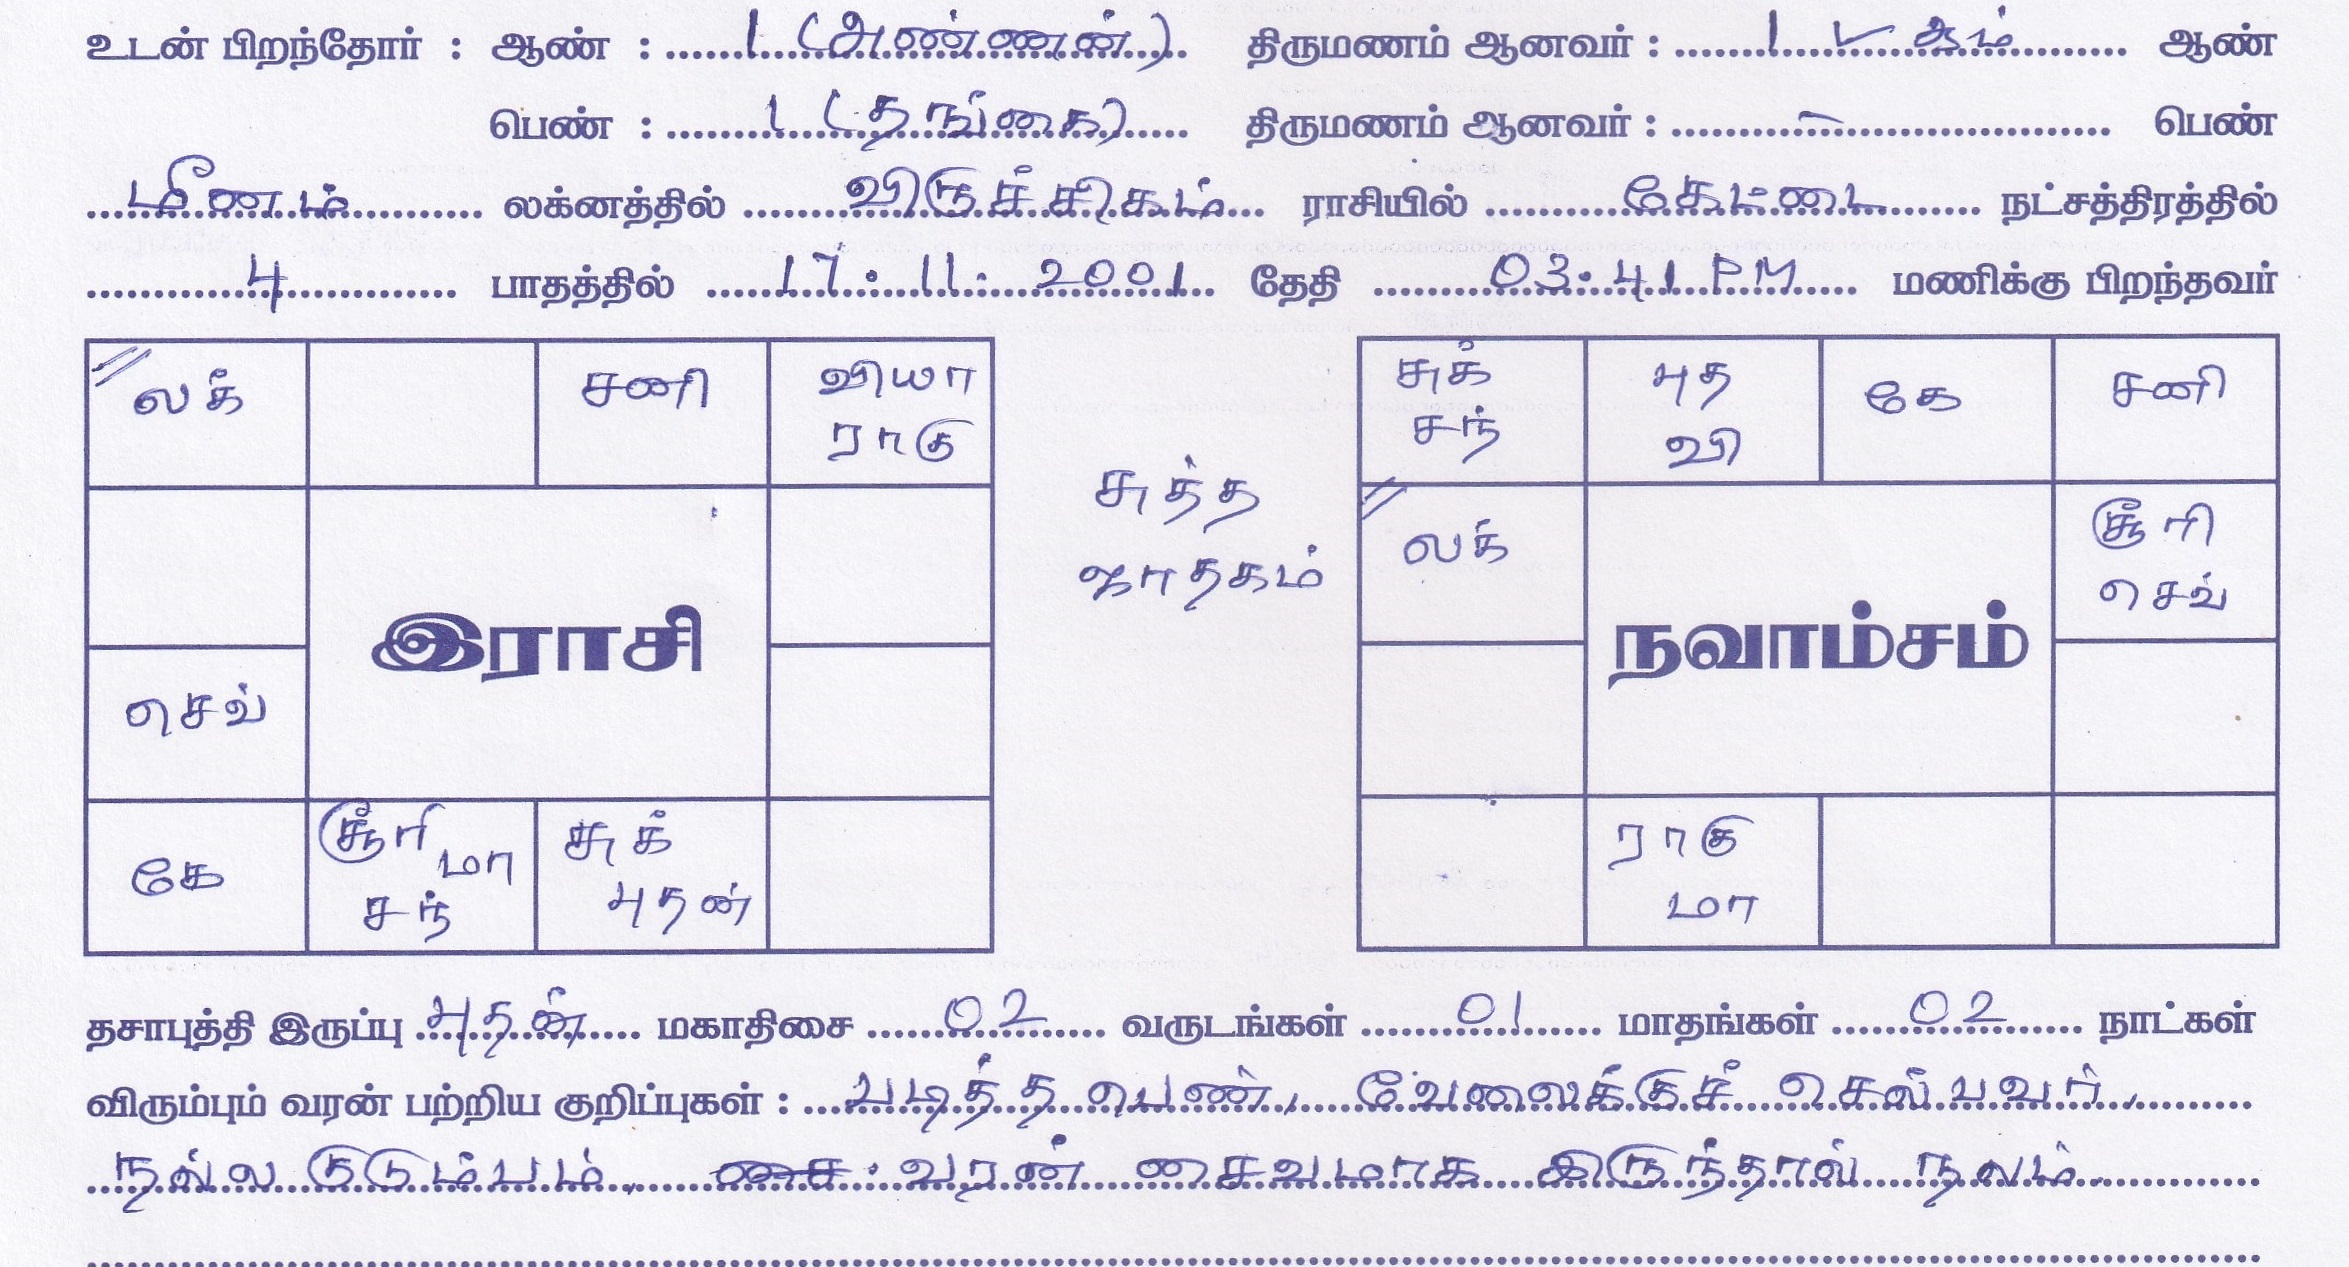 உடன் பிறந்தோர் : ஆண் : 1 (அண்ணன்) திருமணம் ஆனவர் : 1 ஆண்
பெண் : 1 (தங்கை) திருமணம் ஆனவர் : – பெண்
மீனம் லக்னத்தில் விருச்சிகம் ராசியில் கேட்டை நட்சத்திரத்தில்
4 பாதத்தில் 17.11.2001 தேதி 03.41 PM மணிக்கு பிறந்தவர்
லக் சனி வியா
ராகு
செவ்
கே சூரி மா சுக்
சந் புதன்
இராசி
சுத்த
ஜாதகம்
சுக் புத கே சனி
சந் வி
லக் சூரி
செவ்
நவாம்சம்
ராகு
மா
தசாபுத்தி இருப்பு புதன் மகாதிசை 02 வருடங்கள் 01 மாதங்கள் 02 நாட்கள்
விரும்பும் வரன் பற்றிய குறிப்புகள் : படித்த பெண், வேலைக்குச் செல்பவர்,
நல்ல குடும்பம், வரன் சைவமாக இருந்தால் நலம்.